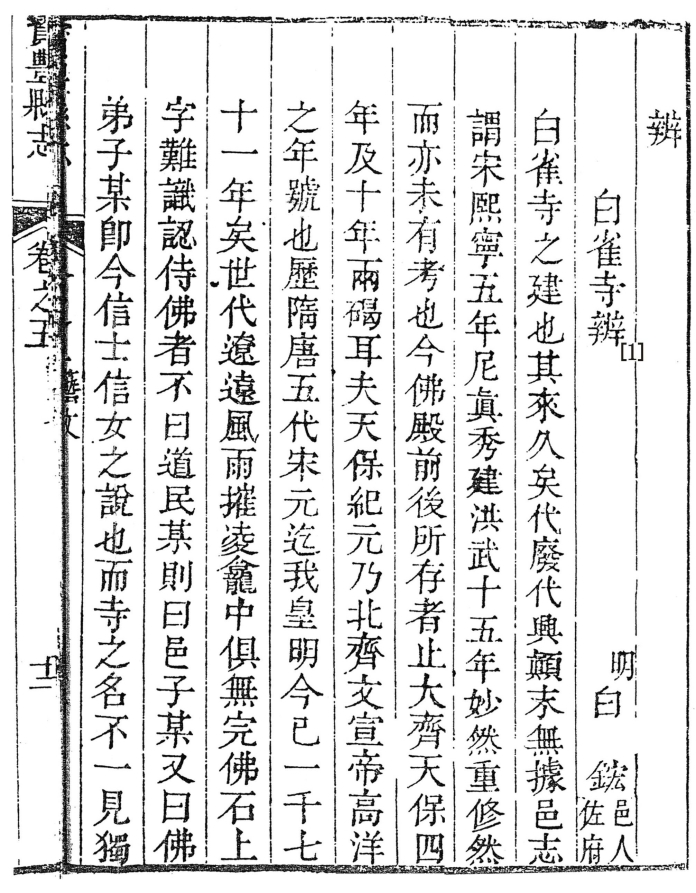 辨
白雀寺辨[1]
明白鋐邑人佐府
白雀寺之建也其來久矣代廢代興顛末無據邑志
謂宋熙寧五年尼眞秀建洪武十五年妙然重修然
而亦未有考也今佛殿前後所存者止大齊天保四
年及十年兩碣耳夫天保紀元乃北齊文宣帝高洋
之年號也歷隋唐五代宋元迄我皇明今已一千七
十一年矣世代遼遠風雨摧凌龕中俱無完佛石上
字難識認侍佛者不曰道民某則曰邑子某又曰佛
弟子某卽今信士信女之說也而寺之名不一見獨
豐縣志
卷之五
藝文
十二